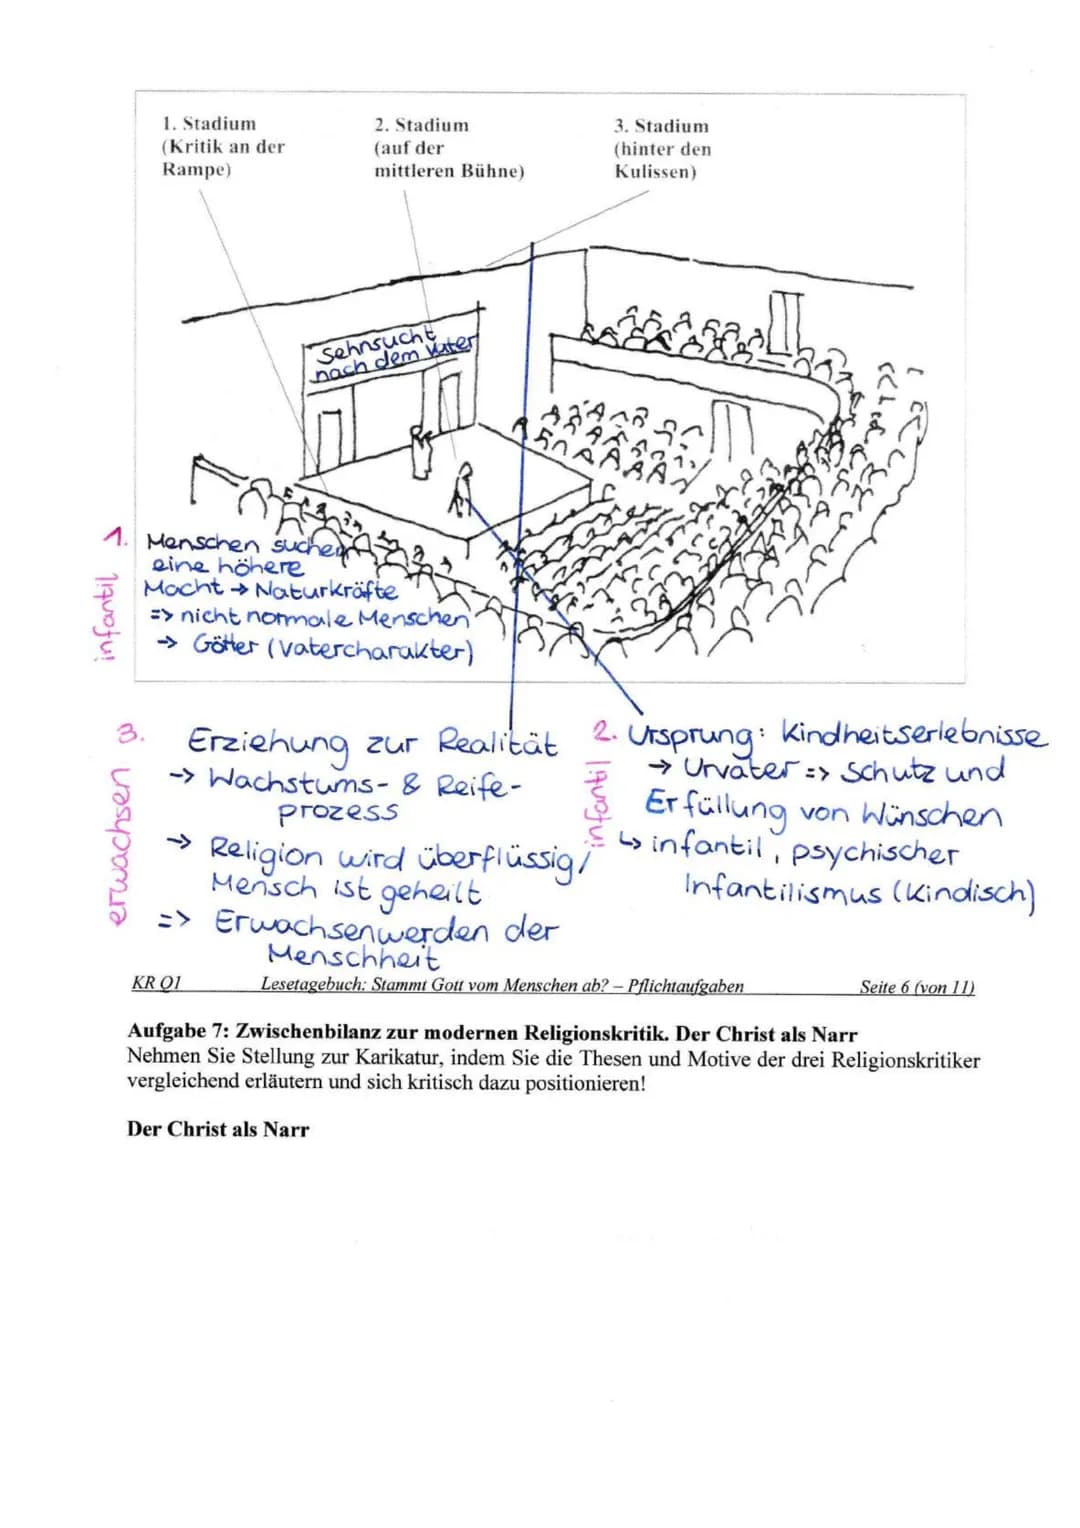 1. Stadium
(Kritik an der
Rampe)
2. Stadium
(auf der
mittleren Bühne)
3. Stadium
(hinter den
Kulissen)
Sehnsucht
nach dem Vater
1. Menschen suchen
eine höhere
Macht → Naturkräfte
=> nicht normale Menschen
→ Götter (Vatercharakter)
infantil
3. Erziehung zur Realität
→ Wachstums- & Reife-
prozess
→ Religion wird überflüssig/
Mensch ist geheilt
=> Erwachsenwerden der
Menschheit
erwachsen
2. Ursprung: Kindheitserlebnisse
→ Urvater => Schutz und
Erfüllung von Wünschen
↳ infantil, psychischer
Infantilismus (kindisch)
infantil
KR Q1 Lesetagebuch: Stammt Gott vom Menschen ab? – Pflichtaufgaben Seite 6 (von 11)
Aufgabe 7: Zwischenbilanz zur modernen Religionskritik. Der Christ als Narr
Nehmen Sie Stellung zur Karikatur, indem Sie die Thesen und Motive der drei Religionskritiker
vergleichend erläutern und sich kritisch dazu positionieren!
Der Christ als Narr